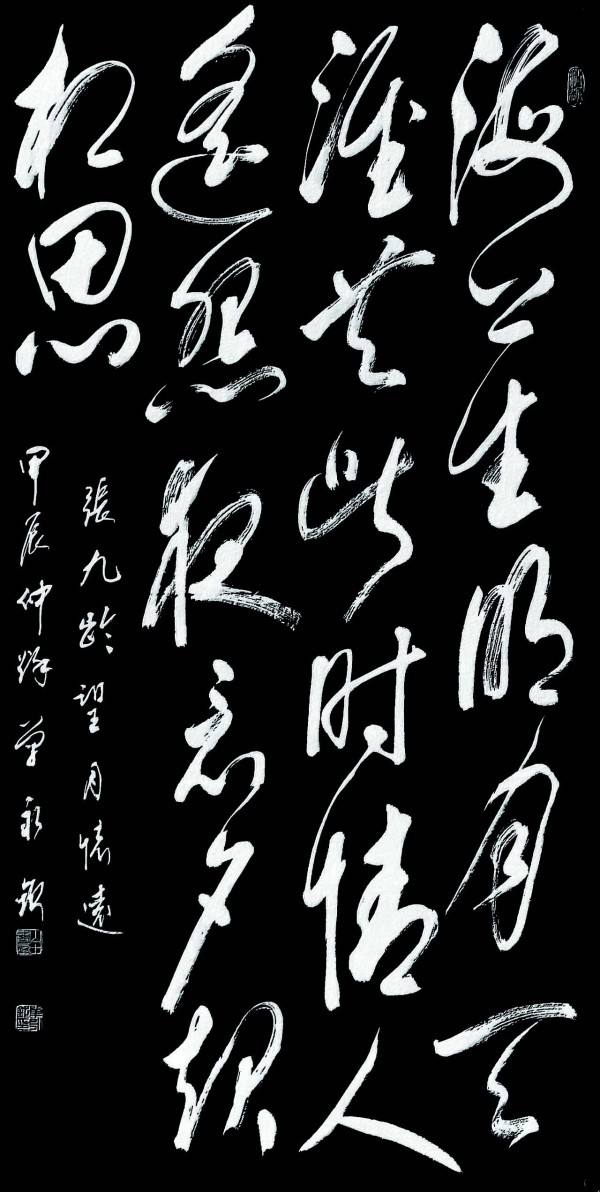 海上生明月天
涯共此时情人
遥怨夜竟夕起
相思
張九齡望月懷遠
甲辰仲秋